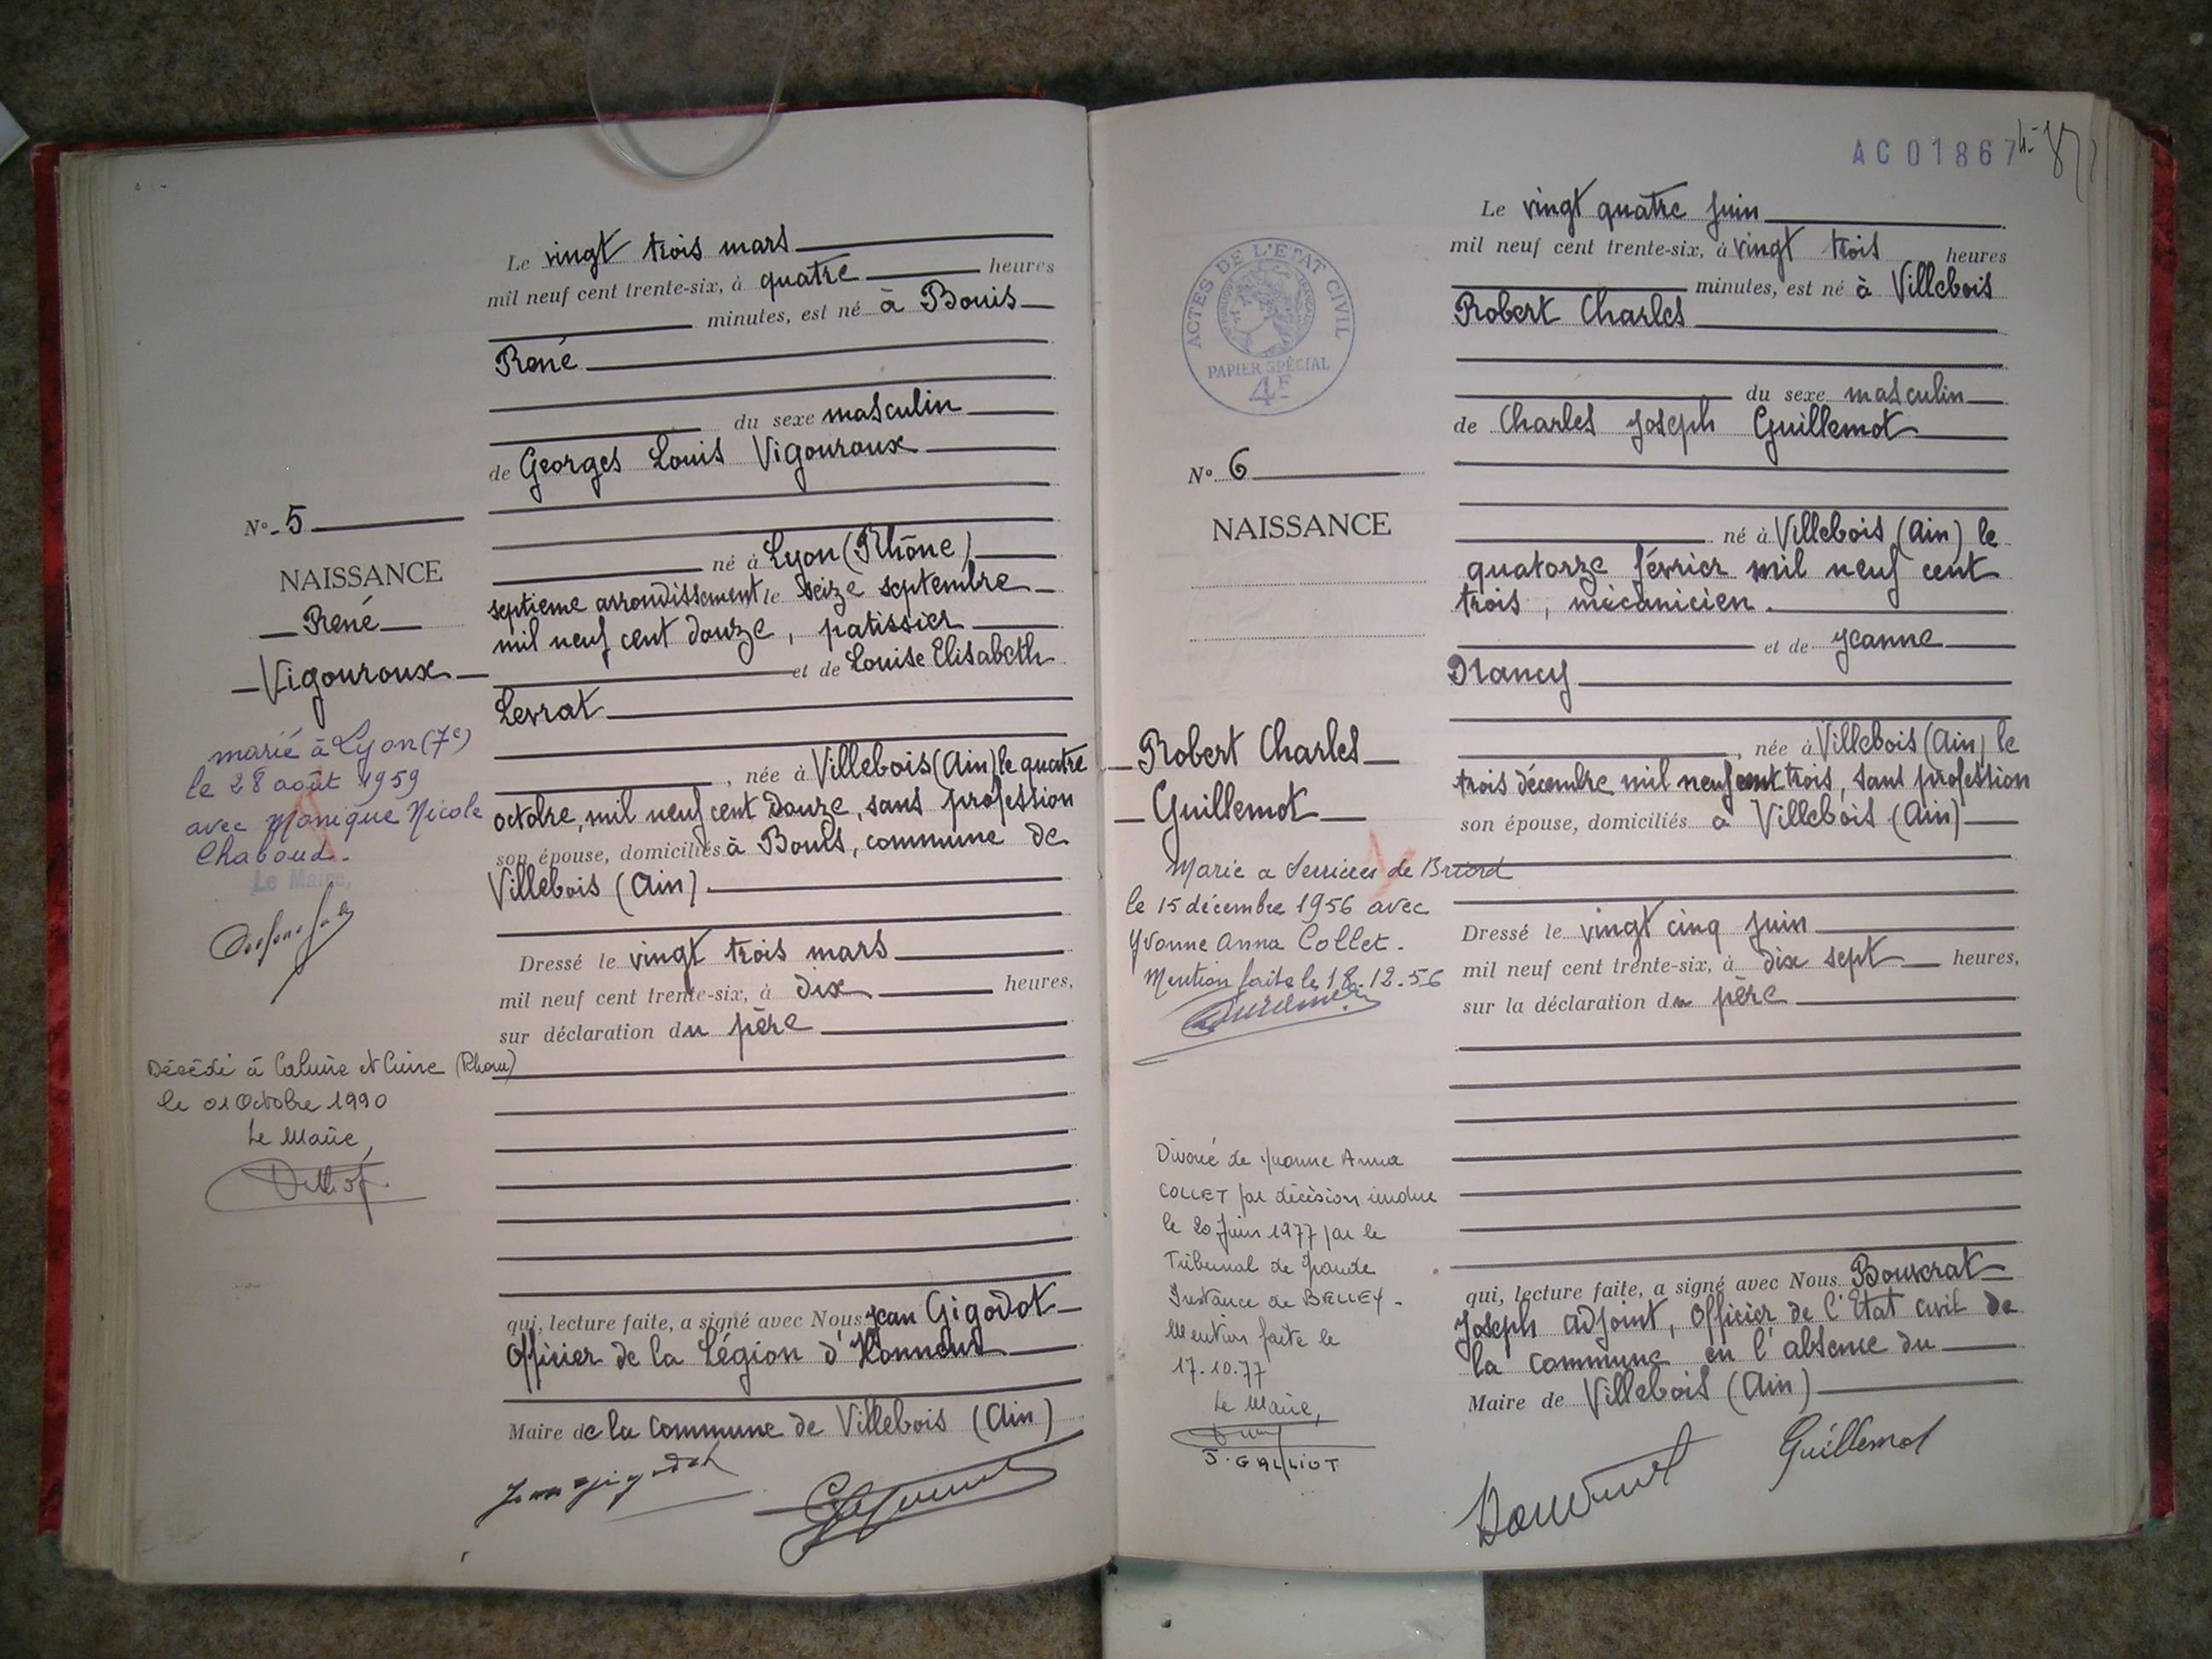 Le vingt trois mars
mil neuf cent trente-six, à quatre heures
minutes, est né à Bouis
René
du sexe masculin
de Georges Louis Vigouroux
N° 5
NAISSANCE
René
Vigouroux
né à Lyon (Rhône)
septieme arrondissement le seize septembre
mil neuf cent douze, patissier
et de Louise Elisabeth
Levrat
, née à Villebois (Ain) le quatre
octobre, mil neuf cent douze, sans profession
son épouse, domiciliés à Bouis, commune de
Villebois (Ain).
marié à Lyon (7e)
le 28 août 1959
avec Monique Nicole
Chaboud.
Le Maire,
Dressé le vingt trois mars
mil neuf cent trente-six, à dix heures,
sur déclaration du père
Décédé à Caluire et Cuire (Rhône)
le 01 Octobre 1990
Le Maire,
qui, lecture faite, a signé avec Nous Jean Gigodot
Officier de la Légion d'Honneur
Maire de la Commune de Villebois (Ain)
AC01867
Le vingt quatre Juin
mil neuf cent trente-six, à vingt trois heures
minutes, est né à Villebois
Robert Charles
ACTES DE L'ETAT CIVIL
PAPIER SPÉCIAL
4F
du sexe masculin
de Charles Joseph Guillemot
N° 6
NAISSANCE
né à Villebois (Ain) le
quatorze février mil neuf cent
trois, mécanicien.
et de Jeanne
Drancy
Robert Charles
Guillemot
, née à Villebois (Ain) le
trois décembre mil neuf cent trois, sans profession
son épouse, domiciliés à Villebois (Ain)
Marié a Serrières de Briord
le 15 décembre 1956 avec
Yvonne Anna Collet.
Mention faite le 18.12.56
Dressé le vingt cinq Juin
mil neuf cent trente-six, à dix sept heures,
sur la déclaration du père
Divorcé de Yvonne Anna
COLLET par décision rendue
le 20 Juin 1977 par le
Tribunal de Grande
Instance de BELLEY -
Mention faite le
17.10.77
Le Maire,
J. GALLIOT
qui, lecture faite, a signé avec Nous Bouvrat
Joseph adjoint, Officier de l'Etat civil de
la commune en l'absence du
Maire de Villebois (Ain)
Guillemot